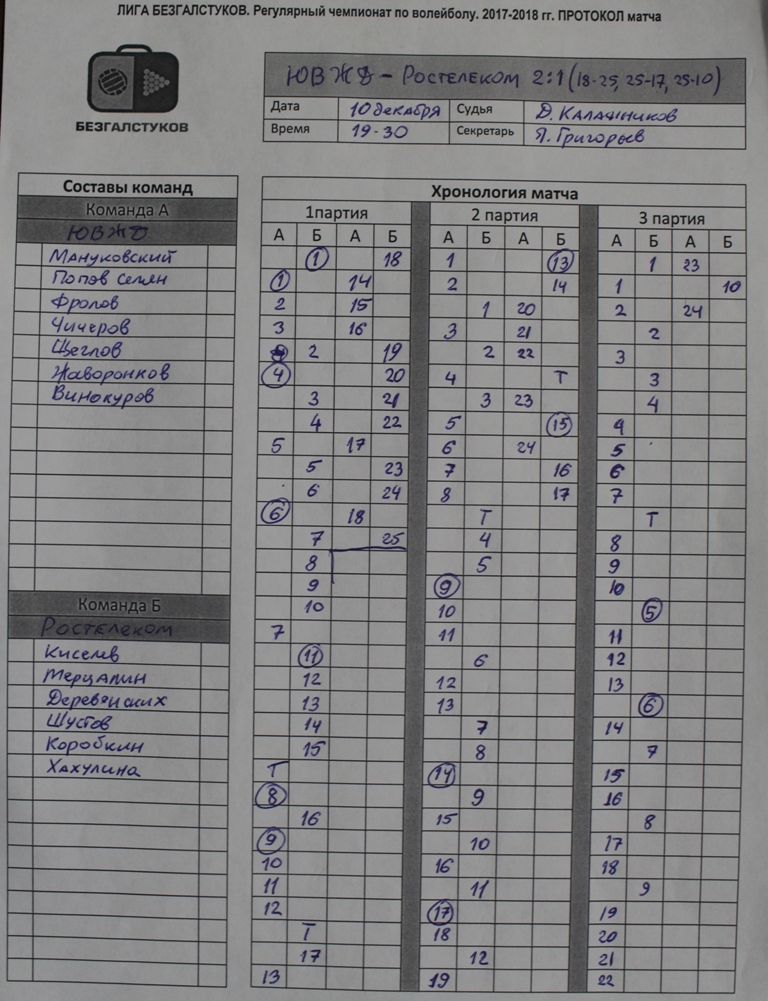 ЛИГА БЕЗГАЛСТУКОВ. Регулярный чемпионат по волейболу. 2017-2018 гг. ПРОТОКОЛ матча
БЕЗГАЛСТУКОВ
ЮВЖД - Ростелеком 2:1 (18-25, 25-17, 25-10)
Дата 10 декабря Судья Д. Калашников
Время 19-30 Секретарь Я. Григорьев
Составы команд
Команда А
ЮВЖД
Мануковский
Попов Семен
Фролов
Чичеров
Щеглов
Жаворонков
Винокуров
Команда Б
Ростелеком
Киселев
Мерцалин
Деревенских
Шустов
Коробкин
Хахулина
Хронология матча
1партия 2 партия 3 партия
А Б А Б А Б А Б А Б А Б
1 18 1 13 1 23
1 14 2 14 1 10
2 15 1 20 2 24
3 16 3 21 2
2 19 2 22 3
4 20 4 Т 3
3 21 3 23 4
4 22 5 15 4
5 17 6 24 5
5 23 7 16 6
6 24 8 17 7
6 18 Т Т
7 25 4 8
8 5 9
9 9 10
10 10 5
7 11 11
11 6 12
12 12 13
13 13 6
14 7 14
15 8 7
Т 14 15
8 9 16
16 15 8
9 10 17
10 16 18
11 11 9
12 17 19
Т 18 20
17 12 21
13 19 22